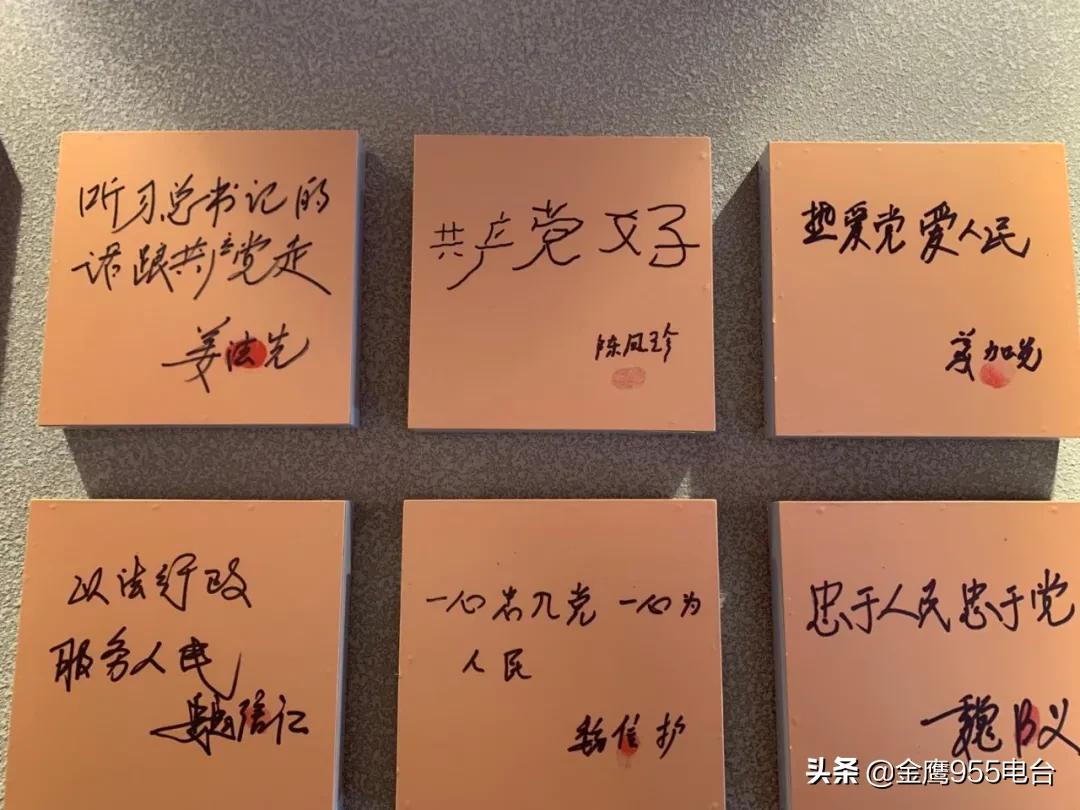 听习总书记的
话跟共产党走
姜法先
共产党好
陈凤珍
热爱党爱人民
姜加兑
以法行政
服务人民
信仁
一心为党 一心为
人民
信
忠于人民忠于党
魏义
头条 @金鹰955电台